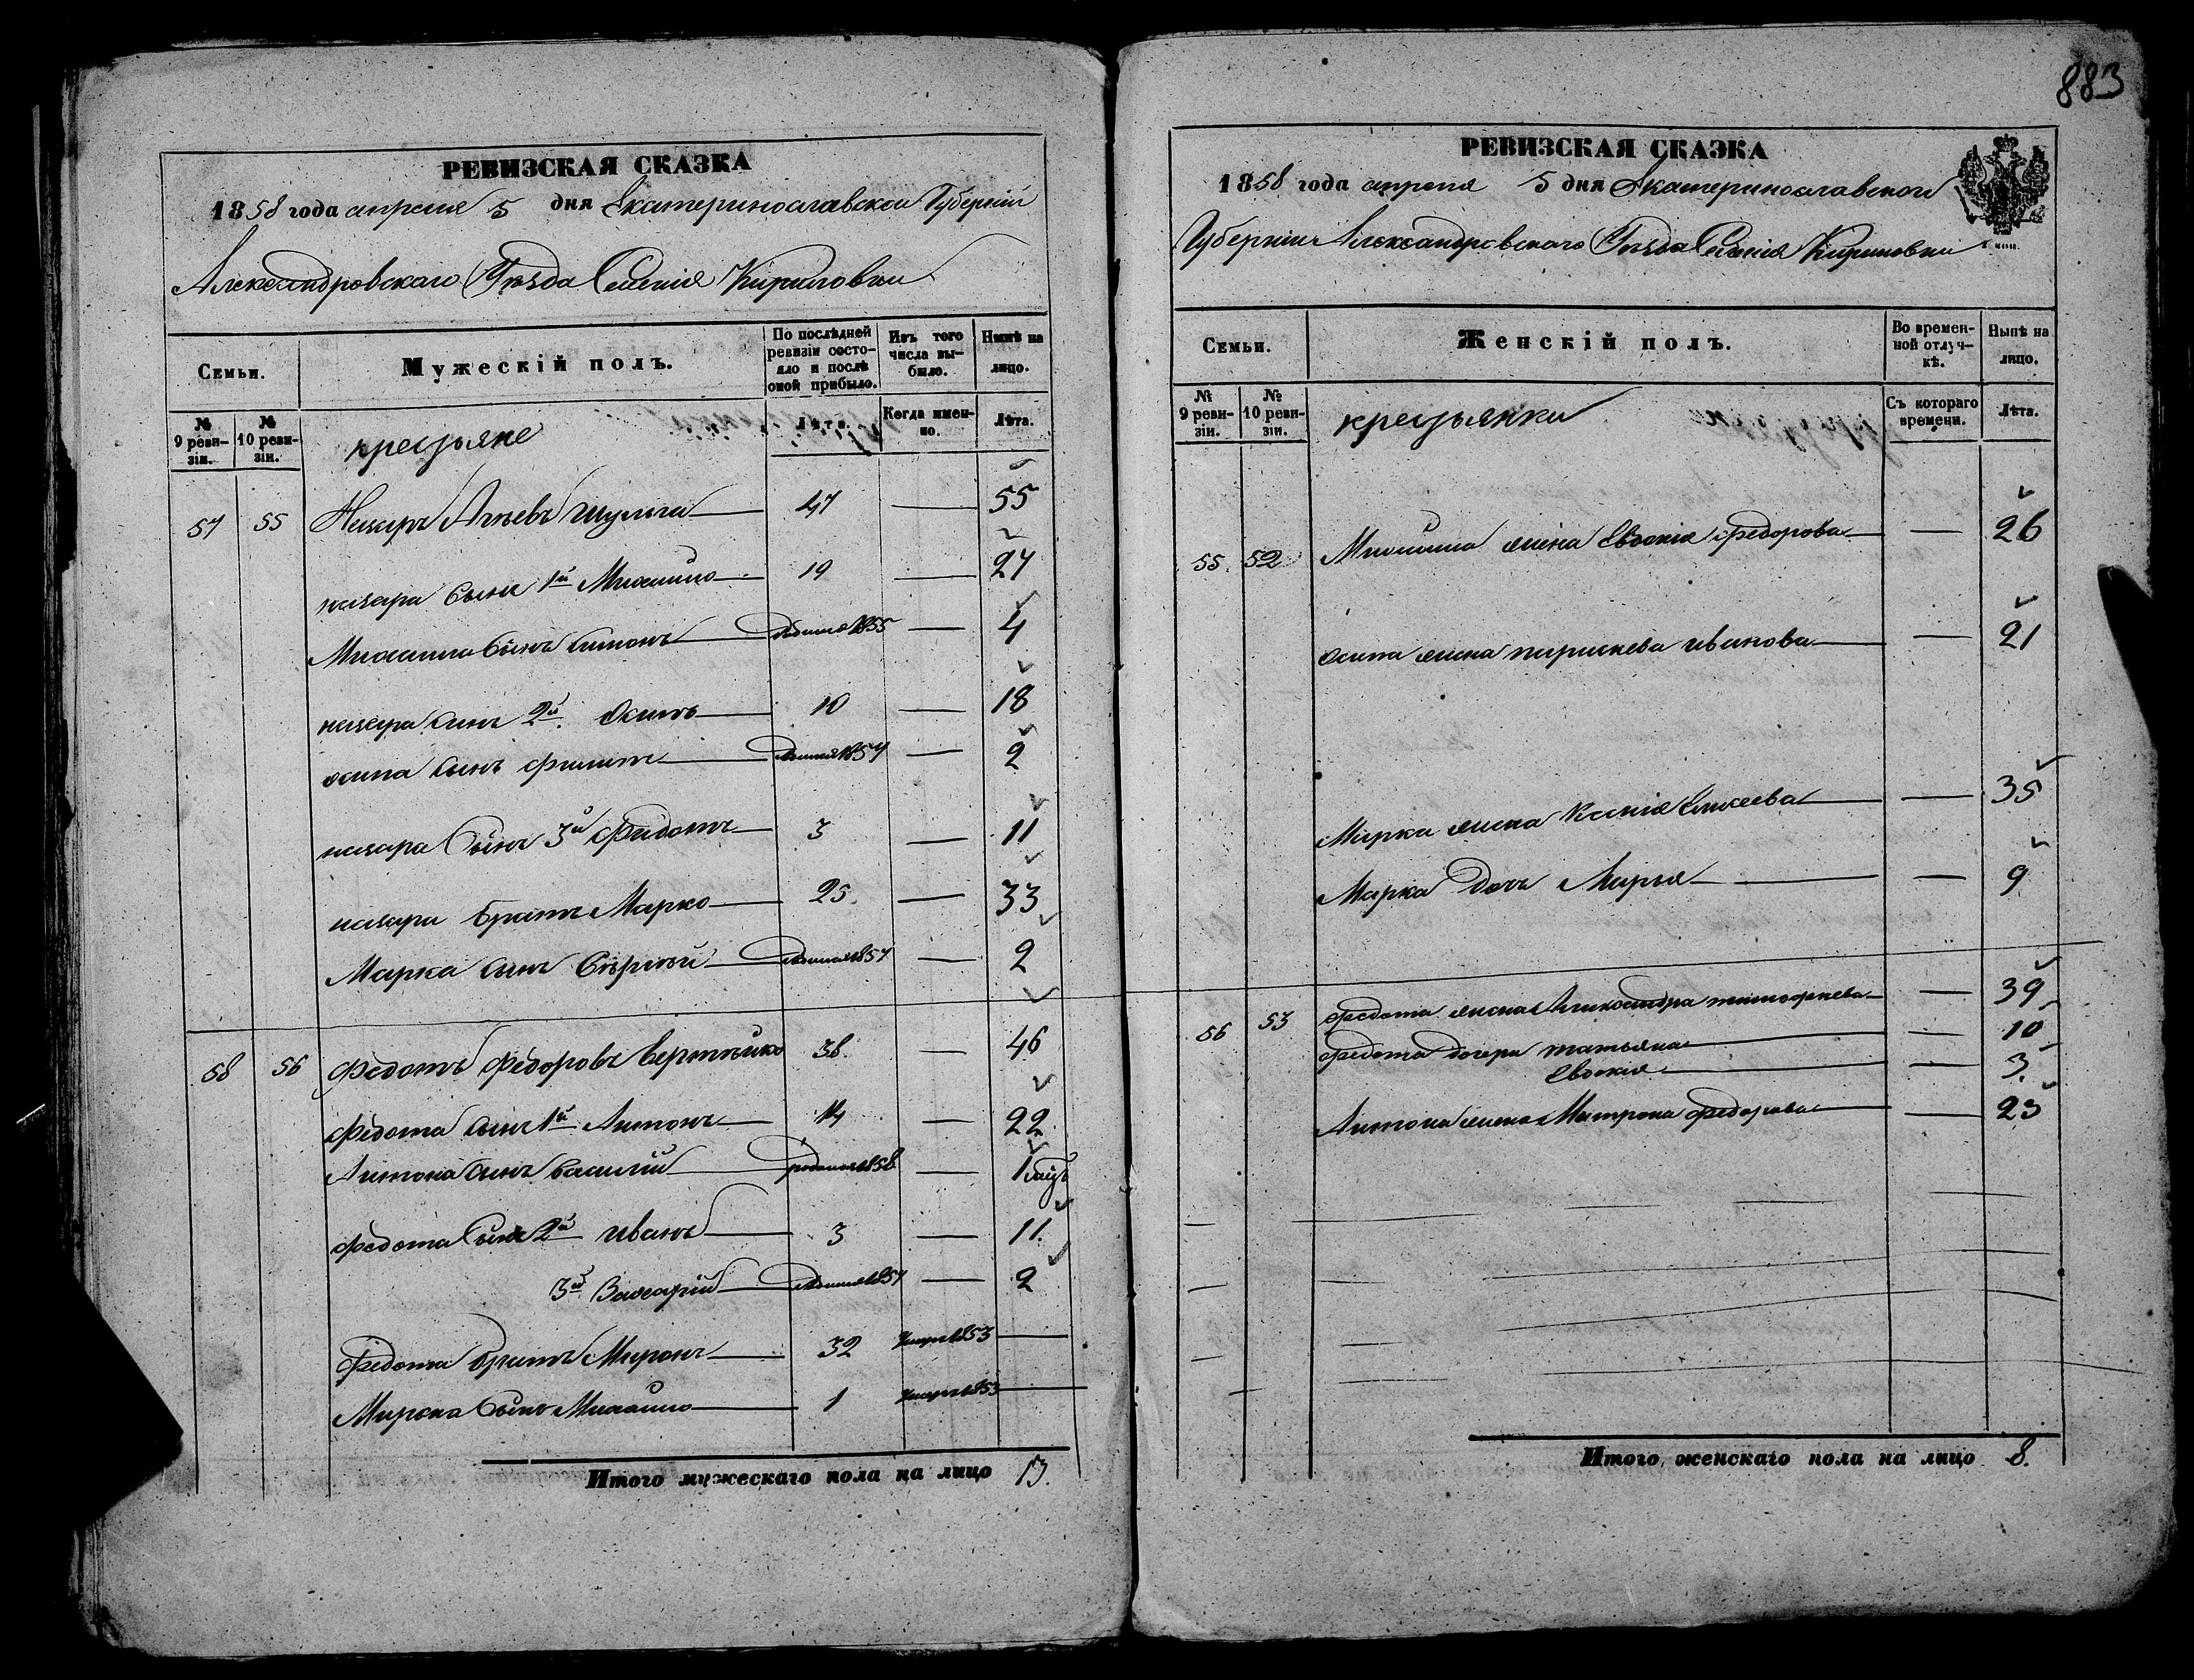 РЕВИЗСКАЯ СКАЗКА
1858 года апреля 5 дня Екатеринославской Губерніи
Александровскаго Уезда Селенія Кириловки
Семьи. Мужескій полъ. По послѣдней ревизіи состояло и послѣ оной прибыло. Изъ того числа выбыло. Нынѣ на лицо.
№ 9 ревизіи. № 10 ревизіи. крестьяне Лѣта. Когда именно. Лѣта.
57 55 Назаръ шульга 47 — 55
назара Сынъ 1й Михайло 19 — 27
Михаила Сынъ родился 1855 — 4
назара Сынъ 2й Осипъ 10 — 18
осипа Сынъ филипъ родился 1857 — 2
назара Сынъ 3й Федотъ 3 — 11
назара братъ Марко 25 — 33
Марка Сынъ Сергѣй родился 1857 — 2
58 56 Федотъ Федоровъ 38 — 46
Федота Сынъ 1й Антонъ 14 — 22
Антона Сынъ Василій родился 1858 — 1
Федота Сынъ 2й иванъ 3 — 11
3й Захарій родился 1857 — 2
Федота братъ Миронъ 32 Умеръ 1853 —
Мирона Сынъ Михайло 1 Умеръ 1853 —
Итого мужескаго пола на лицо 13.
883
РЕВИЗСКАЯ СКАЗКА
1858 года апреля 5 дня Екатеринославской
Губерніи Александровскаго Уезда Селенія Кириловки
Семьи. Женскій полъ. Во временной отлучкѣ. Нынѣ на лицо.
№ 9 ревизіи. № 10 ревизіи. крестьянки Съ котораго времени. Лѣта.
55 52 Михайла жена Евдокія Федорова — 26
осипа жена иванова — 21
Марка жена Ксенія Елисеева — 35
Марка дочь Марья — 9
56 53 Федота жена Александра тимофеева — 39
Федота дочери татьяна — 10
Евдокия — 3
Антона жена Матрона Федорова — 23
Итого женскаго пола на лицо 8.